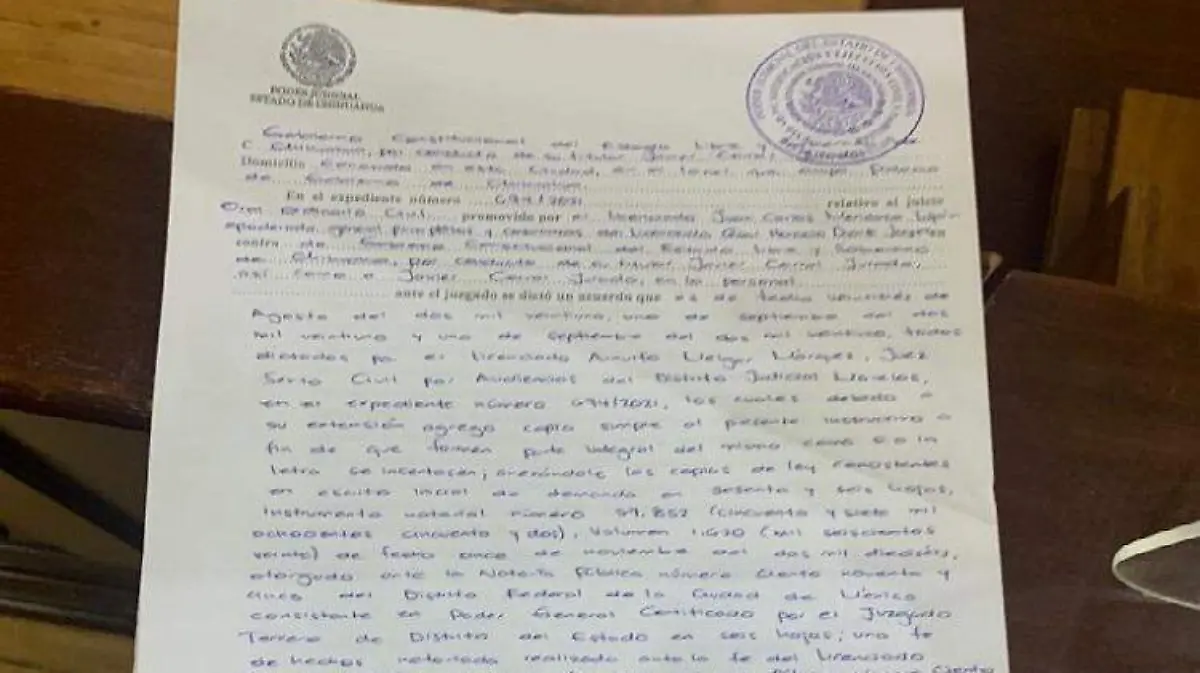 PODER JUDICIAL
ESTADO DE CHIHUAHUA
Gobierno Constitucional del Estado Libre y
C Chihuahua, por conducto de su titular Javier Corral
Domicilio Conocido en esta Ciudad, en el local que ocupa Palacio
de Gobierno de Chihuahua
En el expediente número 674/2021 relativo al juicio
Oral Ordinario Civil promovido por el Licenciado Juan Carlos Mendoza
apoderado general para pleitos y cobranzas del Licenciado Cesar Horacio Duarte Jaquez
contra de Gobierno Constitucional del Estado Libre y Soberano
de Chihuahua, por conducto de su titular Javier Corral Jurado,
así como a Javier Corral Jurado, en lo personal
ante el juzgado se dictó un acuerdo que es de fecha veintitrés de
Agosto del dos mil veintiuno, uno de septiembre del dos
mil veintiuno y uno de septiembre del dos mil veintiuno, todos
dictados por el Licenciado Arnulfo Melgar Márquez, Juez
Sexto Civil por Audiencias del Distrito Judicial Morelos,
en el expediente número 674/2021, los cuales debido a
su extensión agrego copia simple al presente instructivo a
fin de que formen parte integral del mismo como si a la
letra se insertasen; anexándole las copias de ley consistentes
en escrito inicial de demanda en sesenta y seis hojas,
Instrumento notarial número 57,852 (cincuenta y siete mil
ochocientos cincuenta y dos), Volumen 1,620 (mil seiscientos
veinte) de fecha once de noviembre del dos mil dieciséis,
otorgado ante la Notaría Pública número Ciento noventa y
cinco del Distrito Federal de la Ciudad de México
consistente en Poder General Certificado por el Juzgado
Tercero de Distrito del Estado en seis hojas; una fe
de hechos notariada realizada ante la fe del licenciado